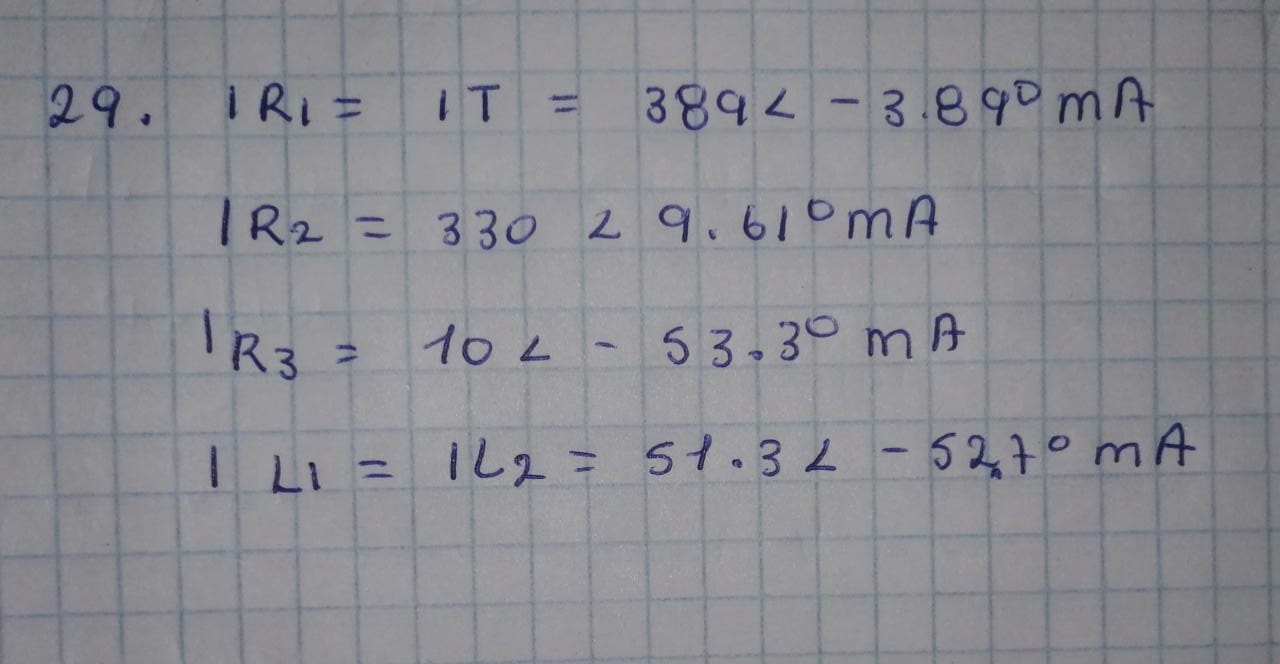 29. IR1 = IT = 389 < - 3.89° mA
IR2 = 330 < 9.61° mA
IR3 = 10 < - 53.3° mA
IL1 = IL2 = 51.3 < - 52.7° mA